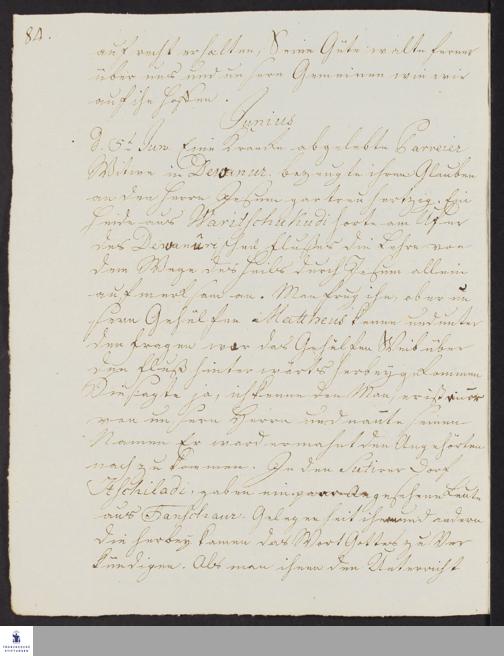 84.
auf recht erhalten, Seine Güte walte ferner
über uns und unsere Gemeinen wie wir
auf ihn hoffen.
Junius
d. 5t. Jun. Eine Krancke abgelebte Parreier
Witwe in Dewanur. bezeugte ihren Glauben
an den Herrn Jesum gar treuhertzig. Ein
Heide aus Waritschukudi horte am Ufer
des Dewanurischen Flußes die Lehre von
dem Wege des Heils durch Jesum allein
aufmercksam an. Man frug ihn, ob er un
sern Gehülfen Mattheus kenne und unter
den fragen war das Gehülfen Weib über
den Fluß hinterwärts herbey gekommen
Dieser sagte ja, ich kenne den Man, er ist
von unsern Herrn und nante seinen
Namen Er ward ermahnt den Angehörten
nach zu kommen. In den Sutirer Dorf
gaben ein paar angesehene Leute
aus Tanschaur. Gelegenheit ihnen und andern
die herbey kamen das Wort Gottes zu Ver
kündigen. Als man ihnen den Unterricht
FRANCKESCHE
STIFTUNGEN